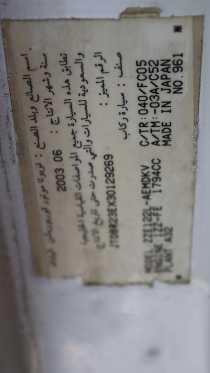 اسم الصانع وبلد الصنع : تويوتا موتور كوربوريشن
سنة وشهر الانتاج : 2003 06
تطابق هذه السيارة جميع المواصفات القياسية الخليجية
والسعودية للسيارات والتي صدرت حتى تاريخ الانتاج
الرقم المميز : JTDBR23EX30129269
صنف : سيارة ركاب
C/TR:040/FC05
A/TM:-03A/C52
MADE IN JAPAN
NO.961
MODEL ZZE122L-AEMDKV
ENGINE 1ZZ-FE 1794CC
PLANT A32